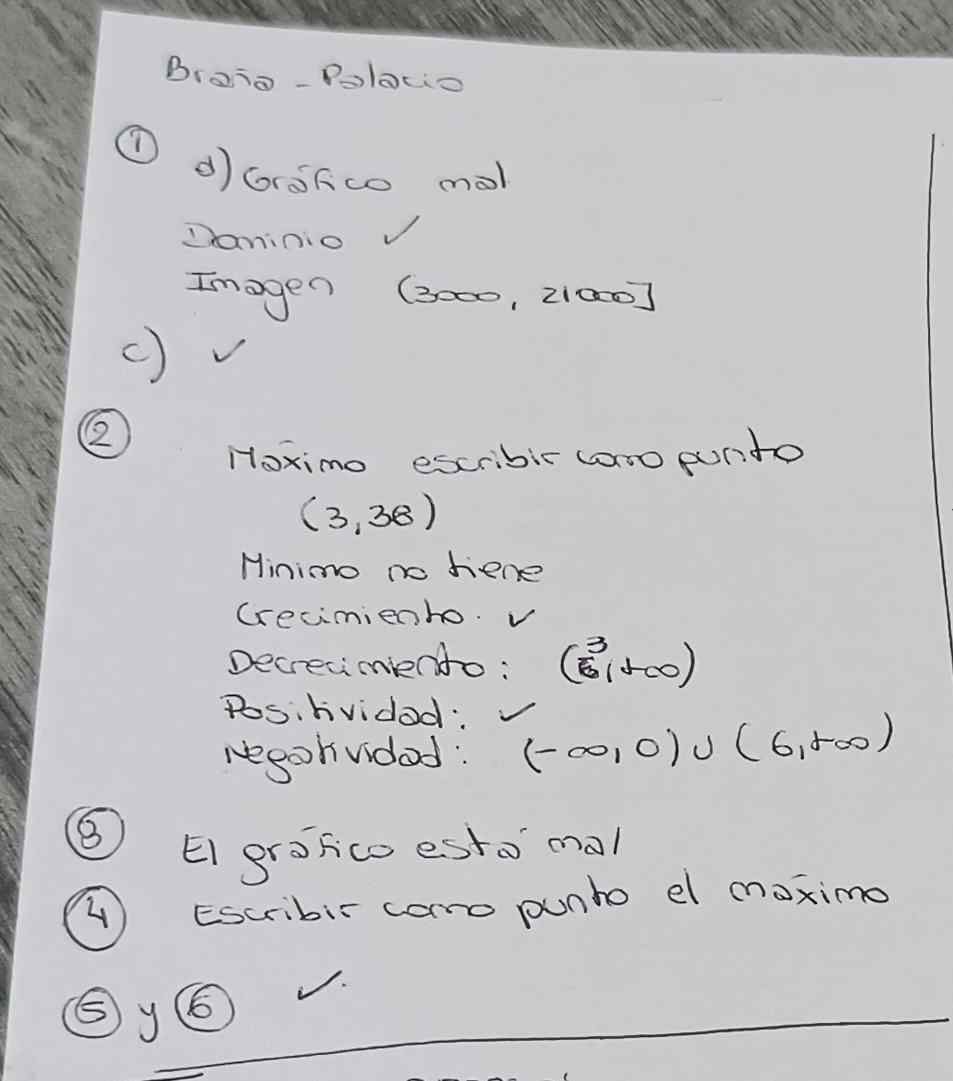 Braña - Palacio
① d) Gráfico mal
Dominio ✓
Imagen (3000, 21000]
c) ✓
② Máximo escribir como punto
(3,36)
Minimo no tiene
Crecimiento. ✓
Decrecimiento: (3, +∞)
Positividad: ✓
Negatividad: (-∞, 0) ∪ (6, +∞)
③ El gráfico está mal
④ Escribir como punto el máximo
⑤ y ⑥ ✓.